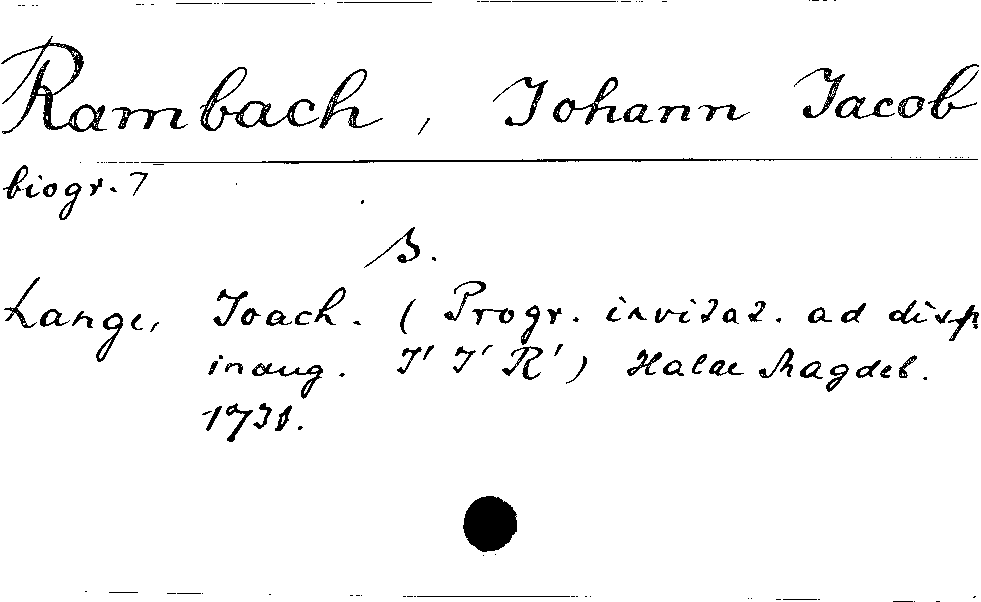 Rambach, Johann Jacob
biogr. 7
s.
Lange, Joach. (Progr. invitat. ad disp
inaug. J' J' R') Halae Magdeb.
1731.